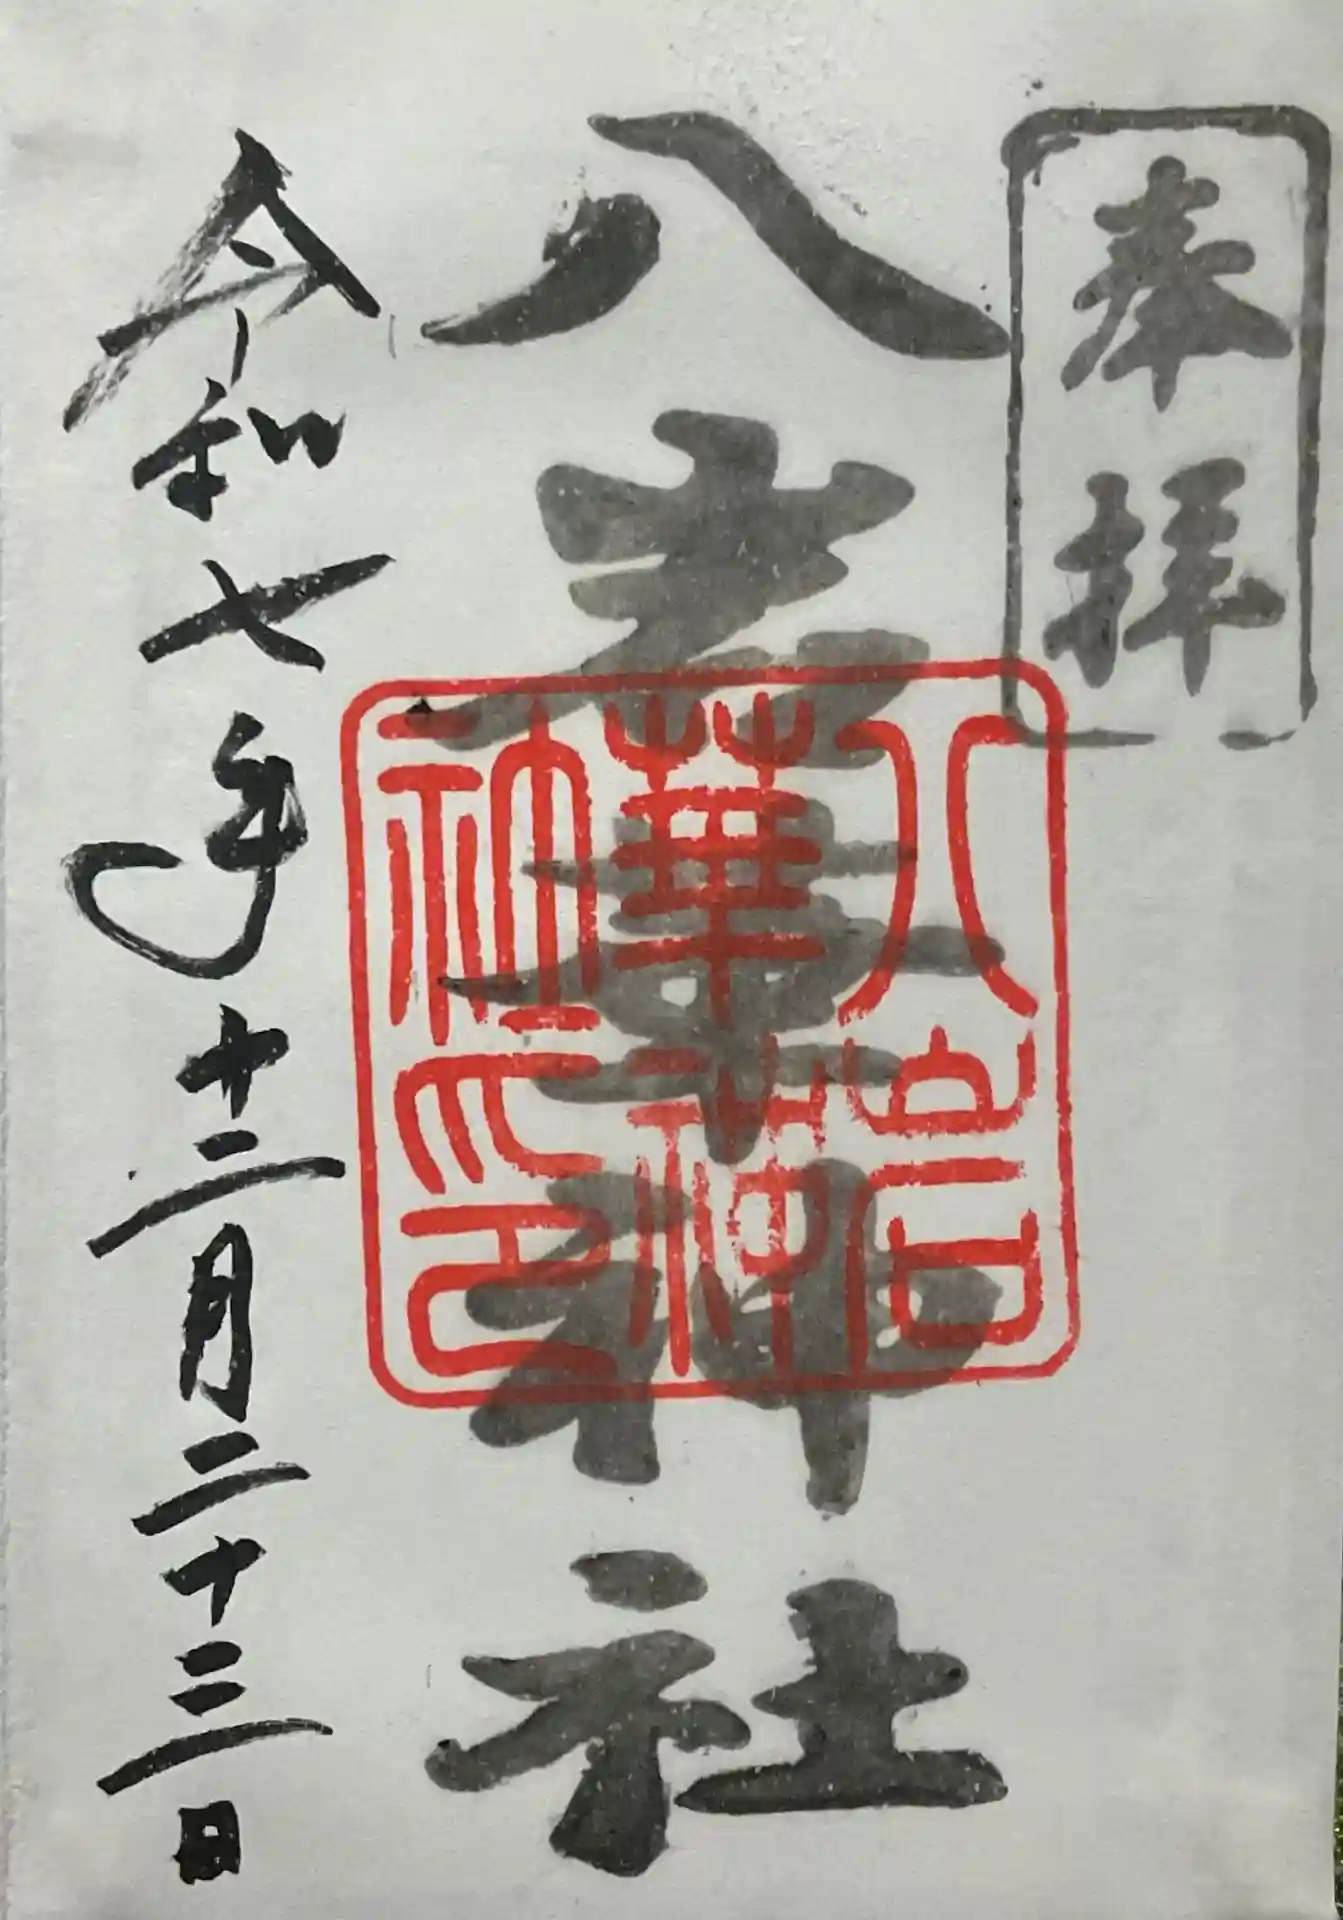 奉拝
八岩華神社
八岩
華神
社印
令和七年十二月二十三日